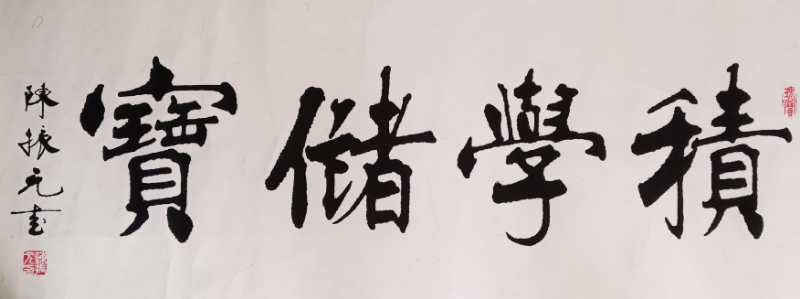 積學儲寶
陳振元書